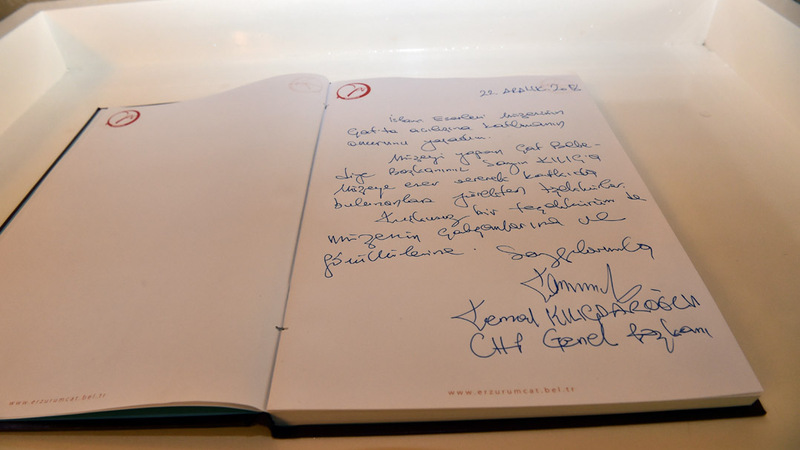 22. ARALIK. 2012
İslam Eserleri Müzesinin
Çat'ta açılışına katılmanın
onurunu yaşadım.
Müzeyi yapan Çat Bele-
diye Başkanımız Sayın KILIÇ'a
müzeye eser vererek katkıda
bulunanlara yürekten teşekkürler.
Kuşkusuz bir teşekkürüm de
müzenin çalışanlarına ve
gönüllülerine. Saygılarımla
Kemal KILIÇDAROĞLU
CHP Genel Başkanı
www.erzurumcat.bel.tr
www.erzurumcat.bel.tr